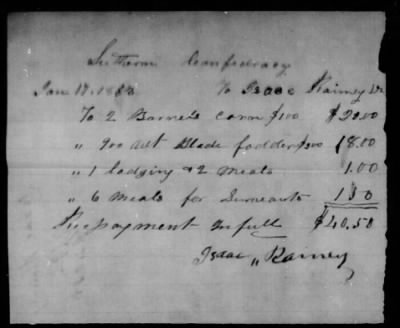 Suthern Confederacy
Jan 17, 1863 To Isaac Rainey Dr
To 2 Barrels corn $20.00
" 900 wt Blade fodder 18.00
" 1 lodging & 2 meals 1.00
" 6 meals for Servants 1 50
Rec payment in full $40.50
Isaac " Rainey